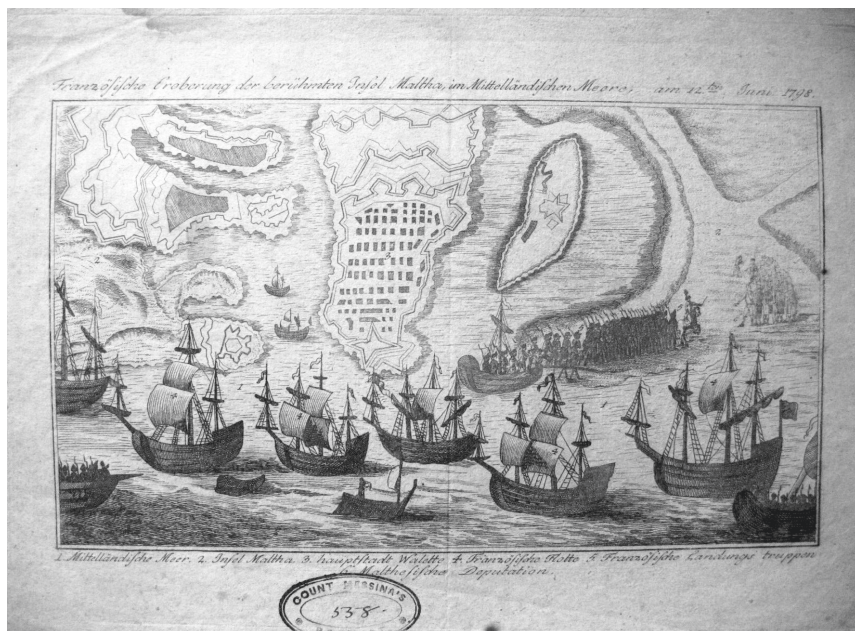 Französische Eroberung der berühmten Insel Maltha, im Mittelländischen Meere, am 12.ten Juni 1798.
2
3
2
1
4
4
4
1. Mittelländische Meer. 2. Insel Maltha. 3. hauptstadt Walette 4. Französische Flotte 5. Französische Landungs truppen
6. Malthesische Deputation.
COUNT MESSINA'S
558